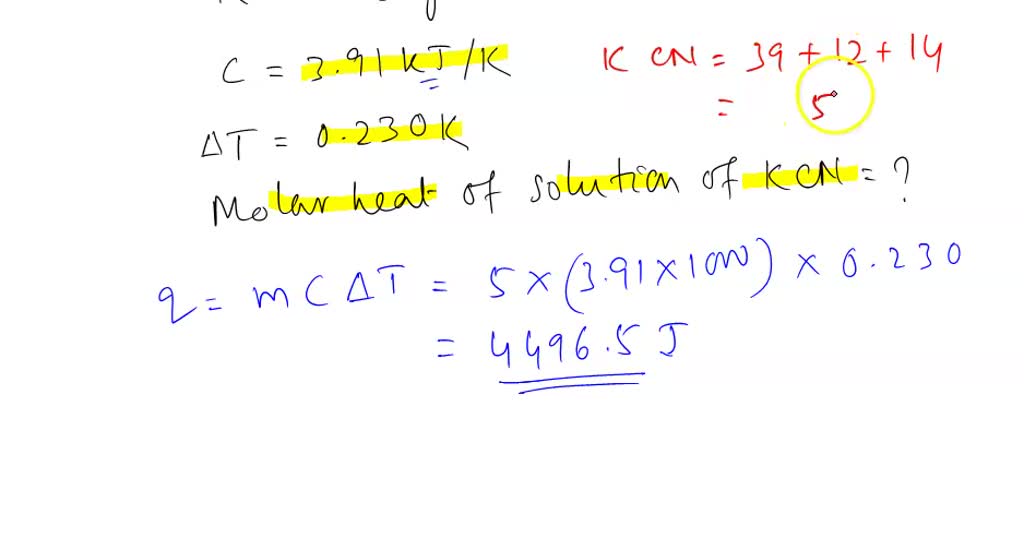 C = 3.91 kJ/K
KCN = 39 + 12 + 14
= 5
ΔT = 0.230K
Molar heat of solution of KCN = ?
q = mCΔT = 5 × (3.91 × 1000) × 0.230
= 4496.5 J